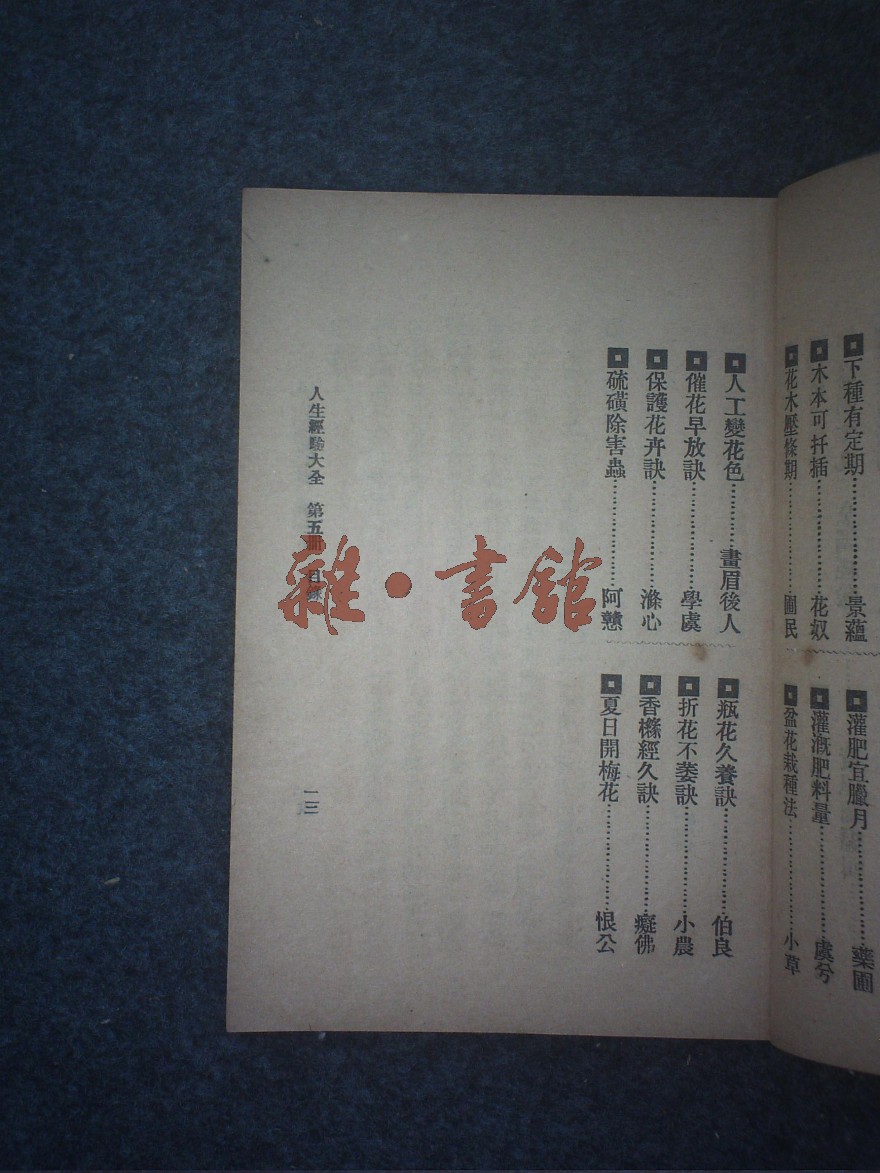 下種有定期……景蘊
木本可扦插……花奴
花木壓條期……圃民
灌肥宜臘月……藥圃
灌溉肥料量……虞兮
盆花栽種法……小草
人工變花色……畫眉後人
催花早放訣……學虞
保護花卉訣……滌心
硫磺除害蟲……阿戇
瓶花久養訣……伯良
折花不萎訣……小農
香櫞經久訣……癡佛
夏日開梅花……恨公
人生經驗大全 第五冊 目錄
一三
雜·書館